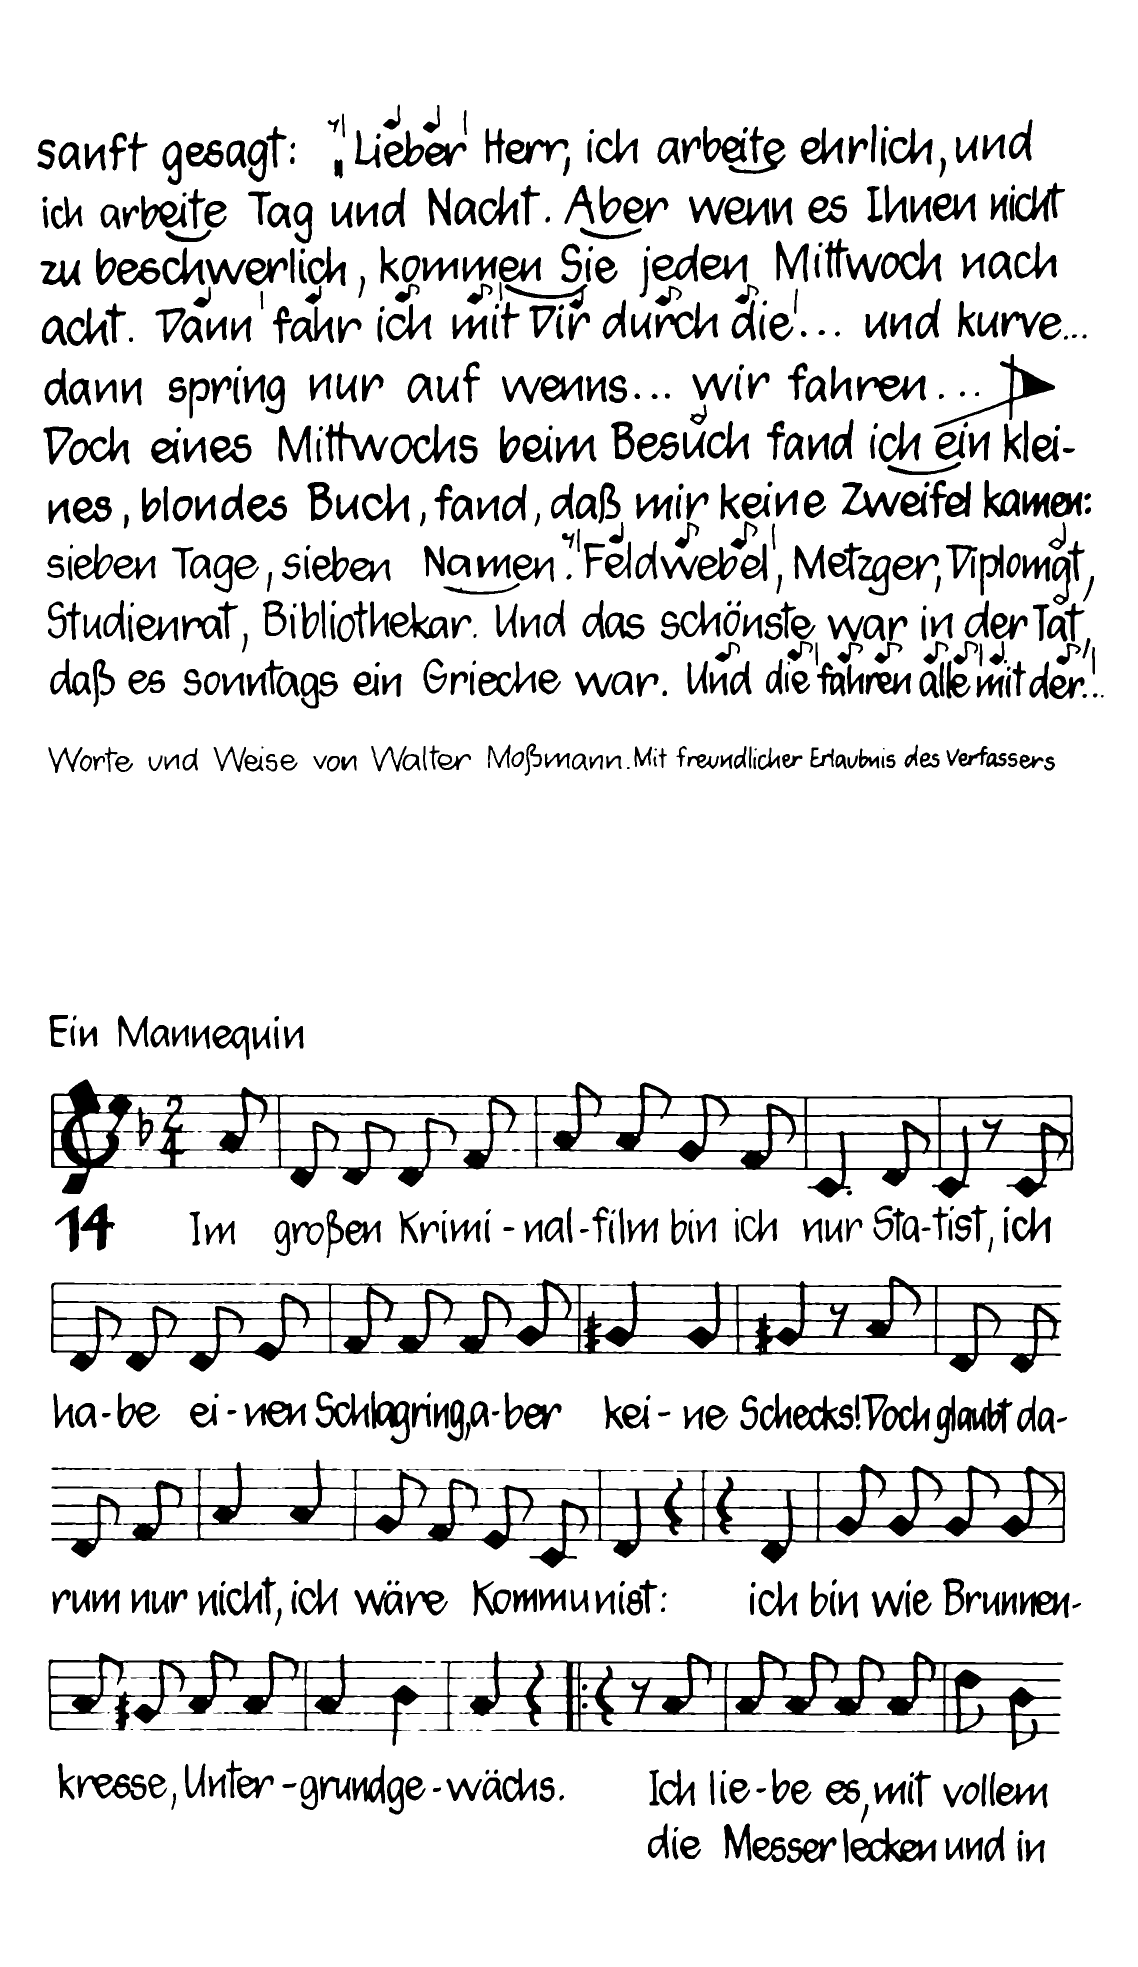 sanft gesagt: „Lieber Herr, ich arbeite ehrlich, und
ich arbeite Tag und Nacht. Aber wenn es Ihnen nicht
zu beschwerlich, kommen Sie jeden Mittwoch nach
acht. Dann fahr ich mit Dir durch die... und kurve...
dann spring nur auf wenns... wir fahren...
Doch eines Mittwochs beim Besuch fand ich ein klei-
nes, blondes Buch, fand, daß mir keine Zweifel kamen:
sieben Tage, sieben Namen. Feldwebel, Metzger, Diplomat,
Studienrat, Bibliothekar. Und das schönste war in der Tat,
daß es sonntags ein Grieche war. Und die fahren alle mit der...
Worte und Weise von Walter Moßmann. Mit freundlicher Erlaubnis des Verfassers
Ein Mannequin
2
4
14 Im großen Krimi-nal-film bin ich nur Sta-tist, ich
ha-be ei-nen Schlagring, a-ber kei-ne Schecks! Doch glaubt da-
rum nur nicht, ich wäre Kommunist: ich bin wie Brunnen-
kresse, Unter-grundge-wächs. Ich lie-be es, mit vollem
die Messer lecken und in